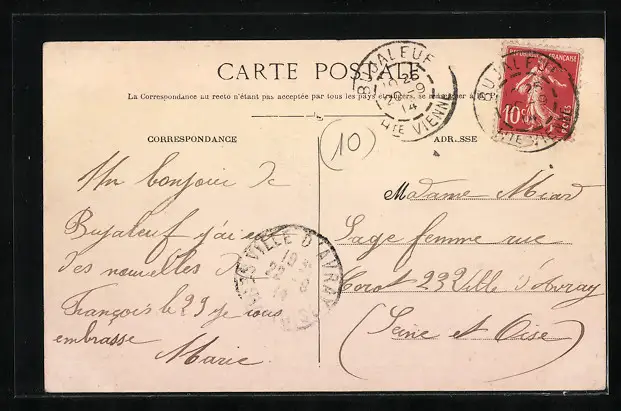 CARTE POSTALE
La Correspondance au recto n'étant pas acceptée par tous les pays étrangers, se renseigner à la
CORRESPONDANCE
(10)
ADRESSE
BUJALEUF
14
HTE VIENNE
BUJALEUF
HTE VIENNE
REPUBLIQUE FRANCAISE
10c
POSTES
Un bonjour de
Bujaleuf j'ai eu
des nouvelles de
François le 29 je vous
embrasse
Marie
VILLE D'AVRAY
Madame Miard
Sage femme rue
Corot 23 Ville d'Avray
(Seine et Oise)